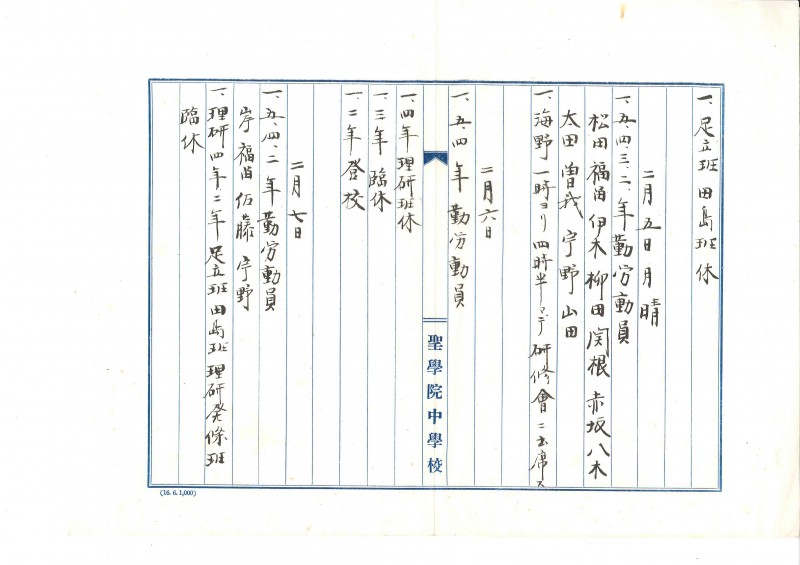 一、足立班 田島班 休
二月五日 月 晴
一、五、四、三、二、年勤労動員
松田 福畄 伊木 柳田 関根 赤坂 八木
太田 曽我 宇野 山田
一、海野 一時ヨリ四時半マデ研修會ニ出席ス
二月六日
一、五、四 年 勤労動員
聖學院中學校
一、四年 理研班休
一、三年 臨休
一、二年 登校
二月七日
一、五、四、二 年 勤労動員
岸 福畄 佐藤 宇野
一、理研四年二年 足立班 田島班 理研発條班
臨休
(16. 6. 1,000)